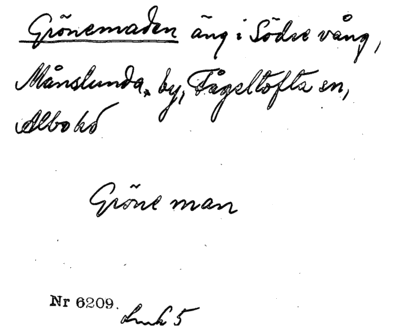 Grönemaden äng i Södre vång,
Månslunda by, Fågeltofta sn,
Albo hd
Gröne man
Nr 6209.